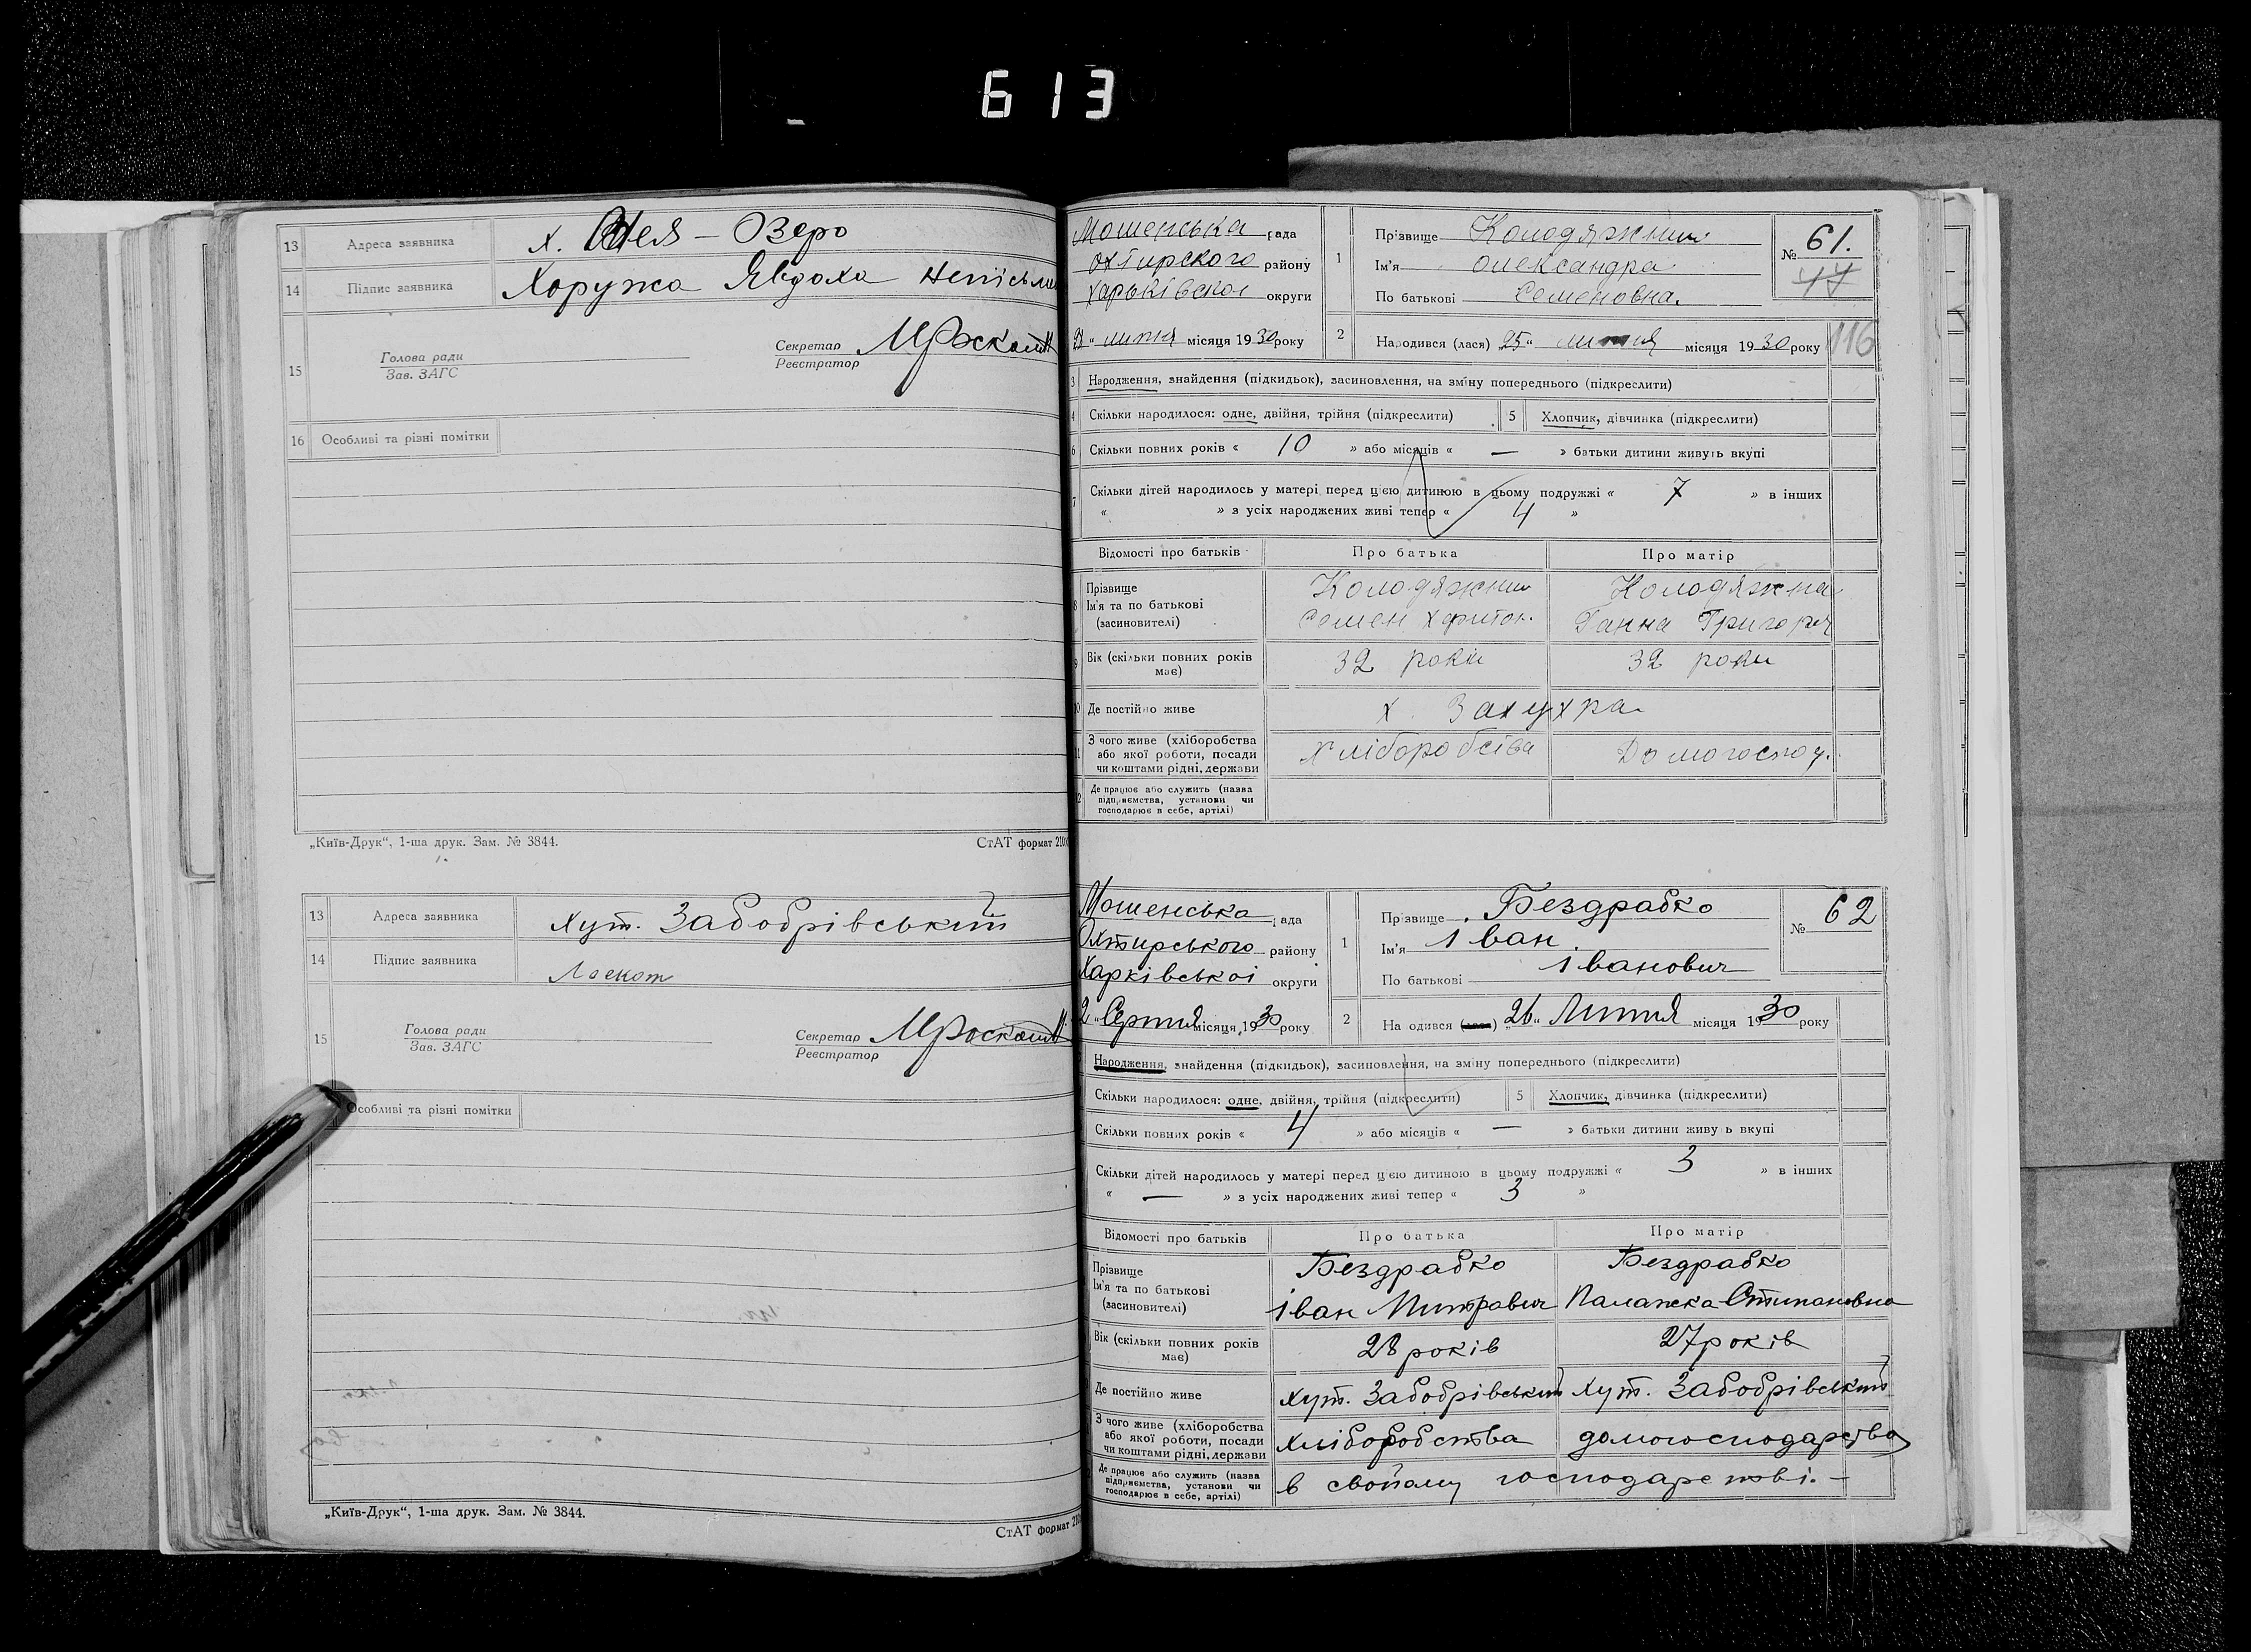 613
13 Адреса заявника х. Озеро
14 Підпис заявника Хоружа Явдоха
15 Голова ради
Зав. ЗАГС
Секретар
Реєстратор
16 Особливі та різні помітки
„Київ-Друк“, 1-ша друк. Зам. № 3844. СтАТ формат
13 Адреса заявника Хут. Забобрівський
14 Підпис заявника Лоскот
15 Голова ради
Зав. ЗАГС
Секретар
Реєстратор
Особливі та різні помітки
„Київ-Друк“, 1-ша друк. Зам. № 3844.
СтАТ формат
Мошенська рада
Охтирского району
Харьківскої округи
28 „ липня місяця 1930 року
1 Прізвище Колодяжний
Ім'я олександра
По батькові Семеновна.
№ 61.
44
2 Народився (лася) „25“ липня місяця 1930 року 116
3 Народження, знайдення (підкидьок), засиновлення, на зміну попереднього (підкреслити)
4 Скільки народилося: одне, двійня, трійня (підкреслити) 5 Хлопчик, дівчинка (підкреслити)
6 Скільки повних років « 10 » або місяців « — » батьки дитини живуть вкупі
7 Скільки дітей народилось у матері перед цією дитиною в цьому подружжі « 7 » в інших
« » з усіх народжених живі тепер « 4 »
Відомості про батьків Про батька Про матір
8 Прізвище
Ім'я та по батькові
(засиновителі)
Колодяжний
Семен Харитон.
Колодяжна
Ганна Григорев
9 Вік (скільки повних років має) 32 роки 32 роки
10 Де постійно живе х. Захухра
11 З чого живе (хліборобства
або якої роботи, посади
чи коштами рідні, держави
хліборобства Домогоспод.
12 Де працює або служить (назва
підприємства, установи чи
господарює в себе, артілі)
Мошенська рада
Охтирського району
Харківської округи
2 „ Серпня місяця, 1930 року
1 Прізвище Бездрабко
Ім'я Іван
По батькові Іванович
№ 62
2 На одився (лася) „26“ Липня місяця 1930 року
Народження, знайдення (підкидьок), засиновлення, на зміну попереднього (підкреслити)
Скільки народилося: одне, двійня, трійня (підкреслити) 5 Хлопчик, дівчинка (підкреслити)
Скільки повних років « 4 » або місяців « — » батьки дитини живу ь вкупі
Скільки дітей народилось у матері перед цією дитиною в цьому подружжі « 3 » в інших
« — » з усіх народжених живі тепер « 3 »
Відомості про батьків Про батька Про матір
Прізвище
Ім'я та по батькові
(засиновителі)
Бездрабко
Іван Митрович
Бездрабко
Палажка Степановна
Вік (скільки повних років має) 28 років 27 років
Де постійно живе хут. Забобрівський хут. Забобрівський
З чого живе (хліборобства
або якої роботи, посади
чи коштами рідні, держави
хліборобства домогосподарства
Де працює або служить (назва
підприємства, установи чи
господарює в себе, артілі)
в свойому господарстві. —